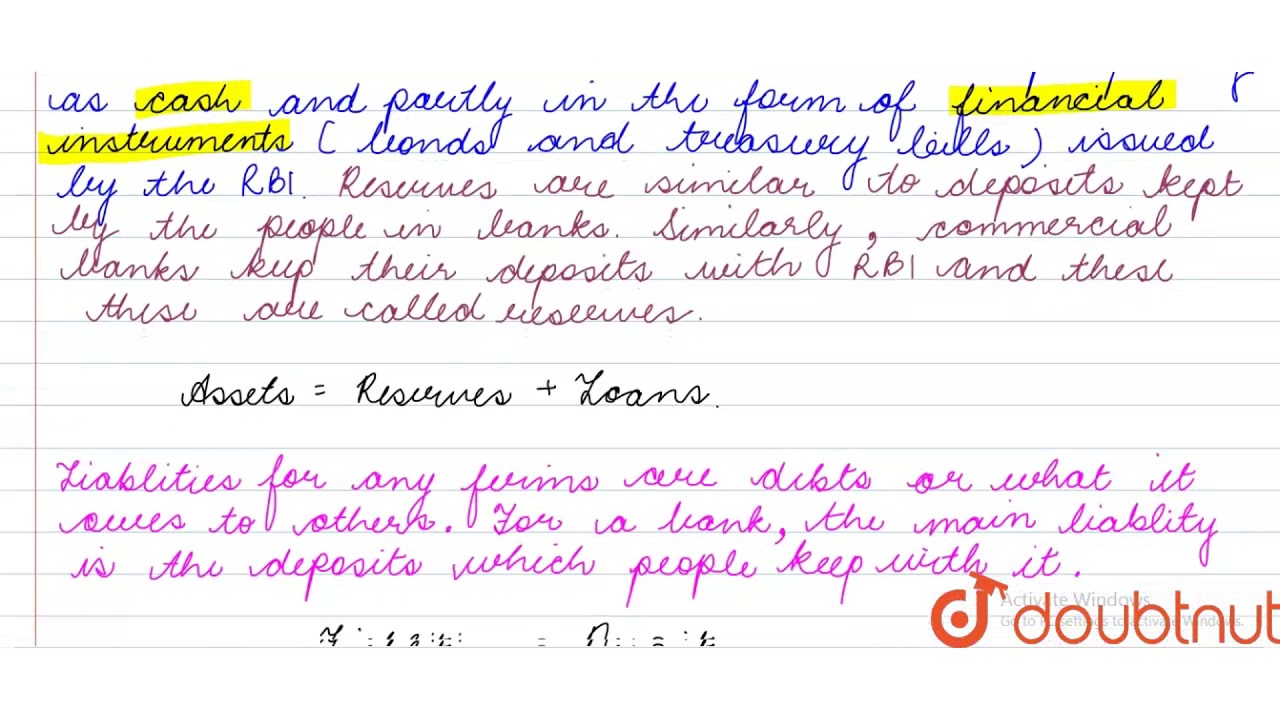 as cash and partly in the form of financial
instruments (bonds and treasury bills) issued
by the RBI. Reserves are similar to deposits kept
by the people in banks. Similarly, commercial
banks kep their deposits with RBI and these
these are called reserves.
Assets = Reserves + Loans.
Liablities for any firms are debts or what it
owes to others. For a bank, the main liablity
is the deposits which people keep with it.
Activate Windows
Go to PC settings to activate Windows.
doubtnut